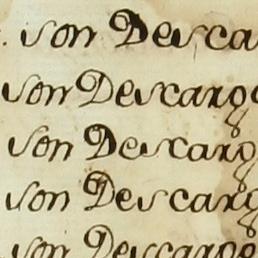 son Desca
son Descargo
son Descarg
son Descarg
son Descargo